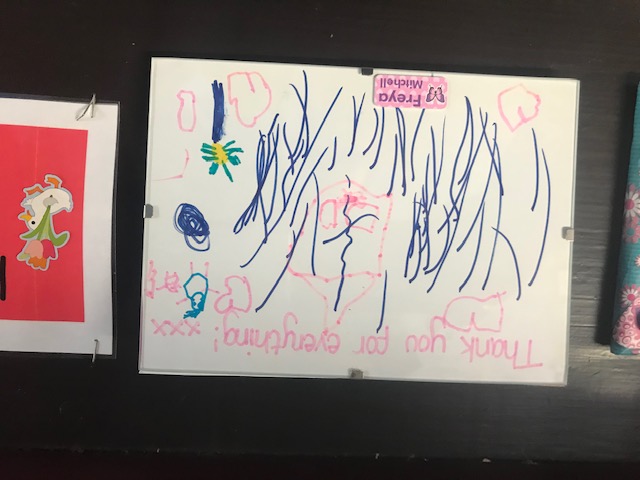 Thank you for everything! xxx
Freya
Mitchell